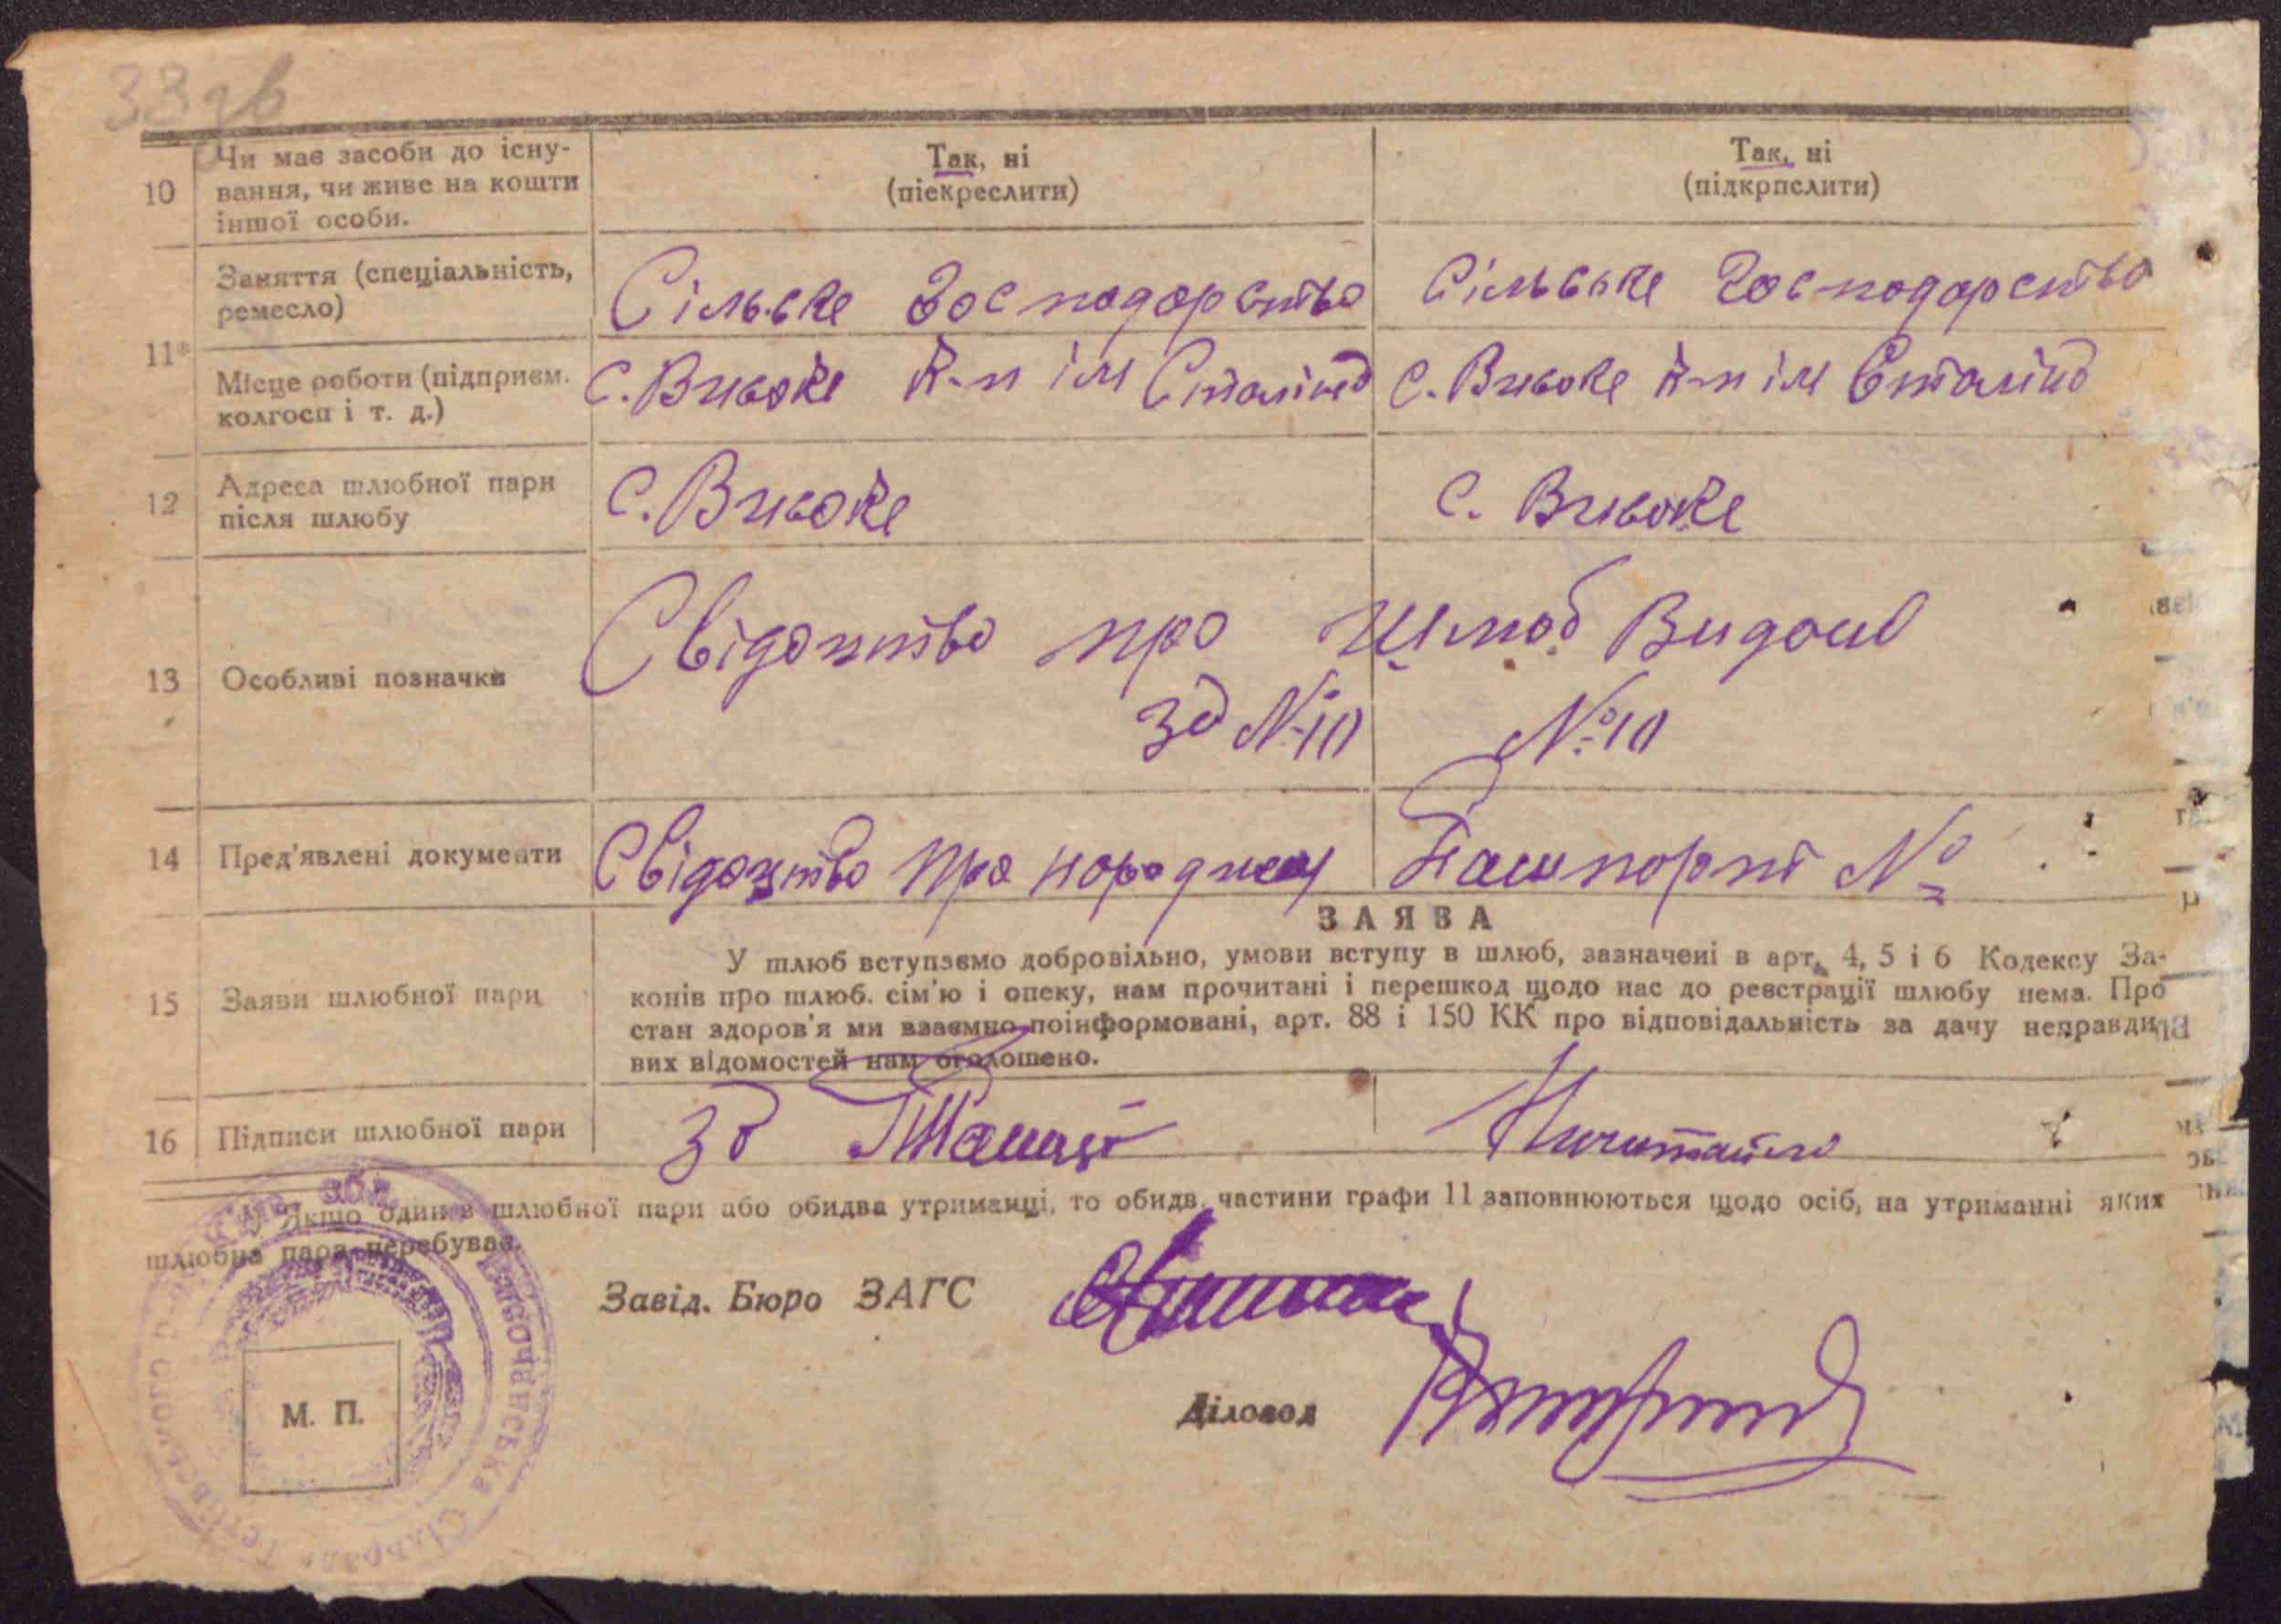 33зв
10
Чи має засоби до існу-
вання, чи живе на кошти
іншої особи.
Так, ні
(піекреслити)
Так, ні
(підкрпслити)
11*
Заняття (спеціальність,
ремесло)
Сільське Господарство
Сільське Господарство
Місце роботи (підприєм.
колгосп і т. д.)
С. Високе к-п ім Сталіна
С. Високе к-п ім Сталіна
12
Адреса шлюбної пари
після шлюбу
С. Високе
С. Високе
13
Особливі позначки
Свідоцтво про Шлюб Видано
За №10 №10
14
Пред'явлені документи
Свідоцтво про народжен
Пашпорт №
15
Заяви шлюбної пари
ЗАЯВА
У шлюб вступаємо добровільно, умови вступу в шлюб, зазначені в арт. 4, 5 і 6 Кодексу За-
конів про шлюб. сім'ю і опеку, нам прочитані і перешкод щодо нас до реєстрації шлюбу нема. Про
стан здоров'я ми взаємно поінформовані, арт. 88 і 150 КК про відповідальність за дачу неправди
вих відомостей нам оголошено.
16
Підписи шлюбної пари
Якщо один в шлюбної пари або обидва утриманці, то обидв. частини графи 11 заповнюються щодо осіб, на утриманні яких
шлюбна пара перебуває.
Завід. Бюро ЗАГС
Діловод
М. П.
Височанська Сільрада